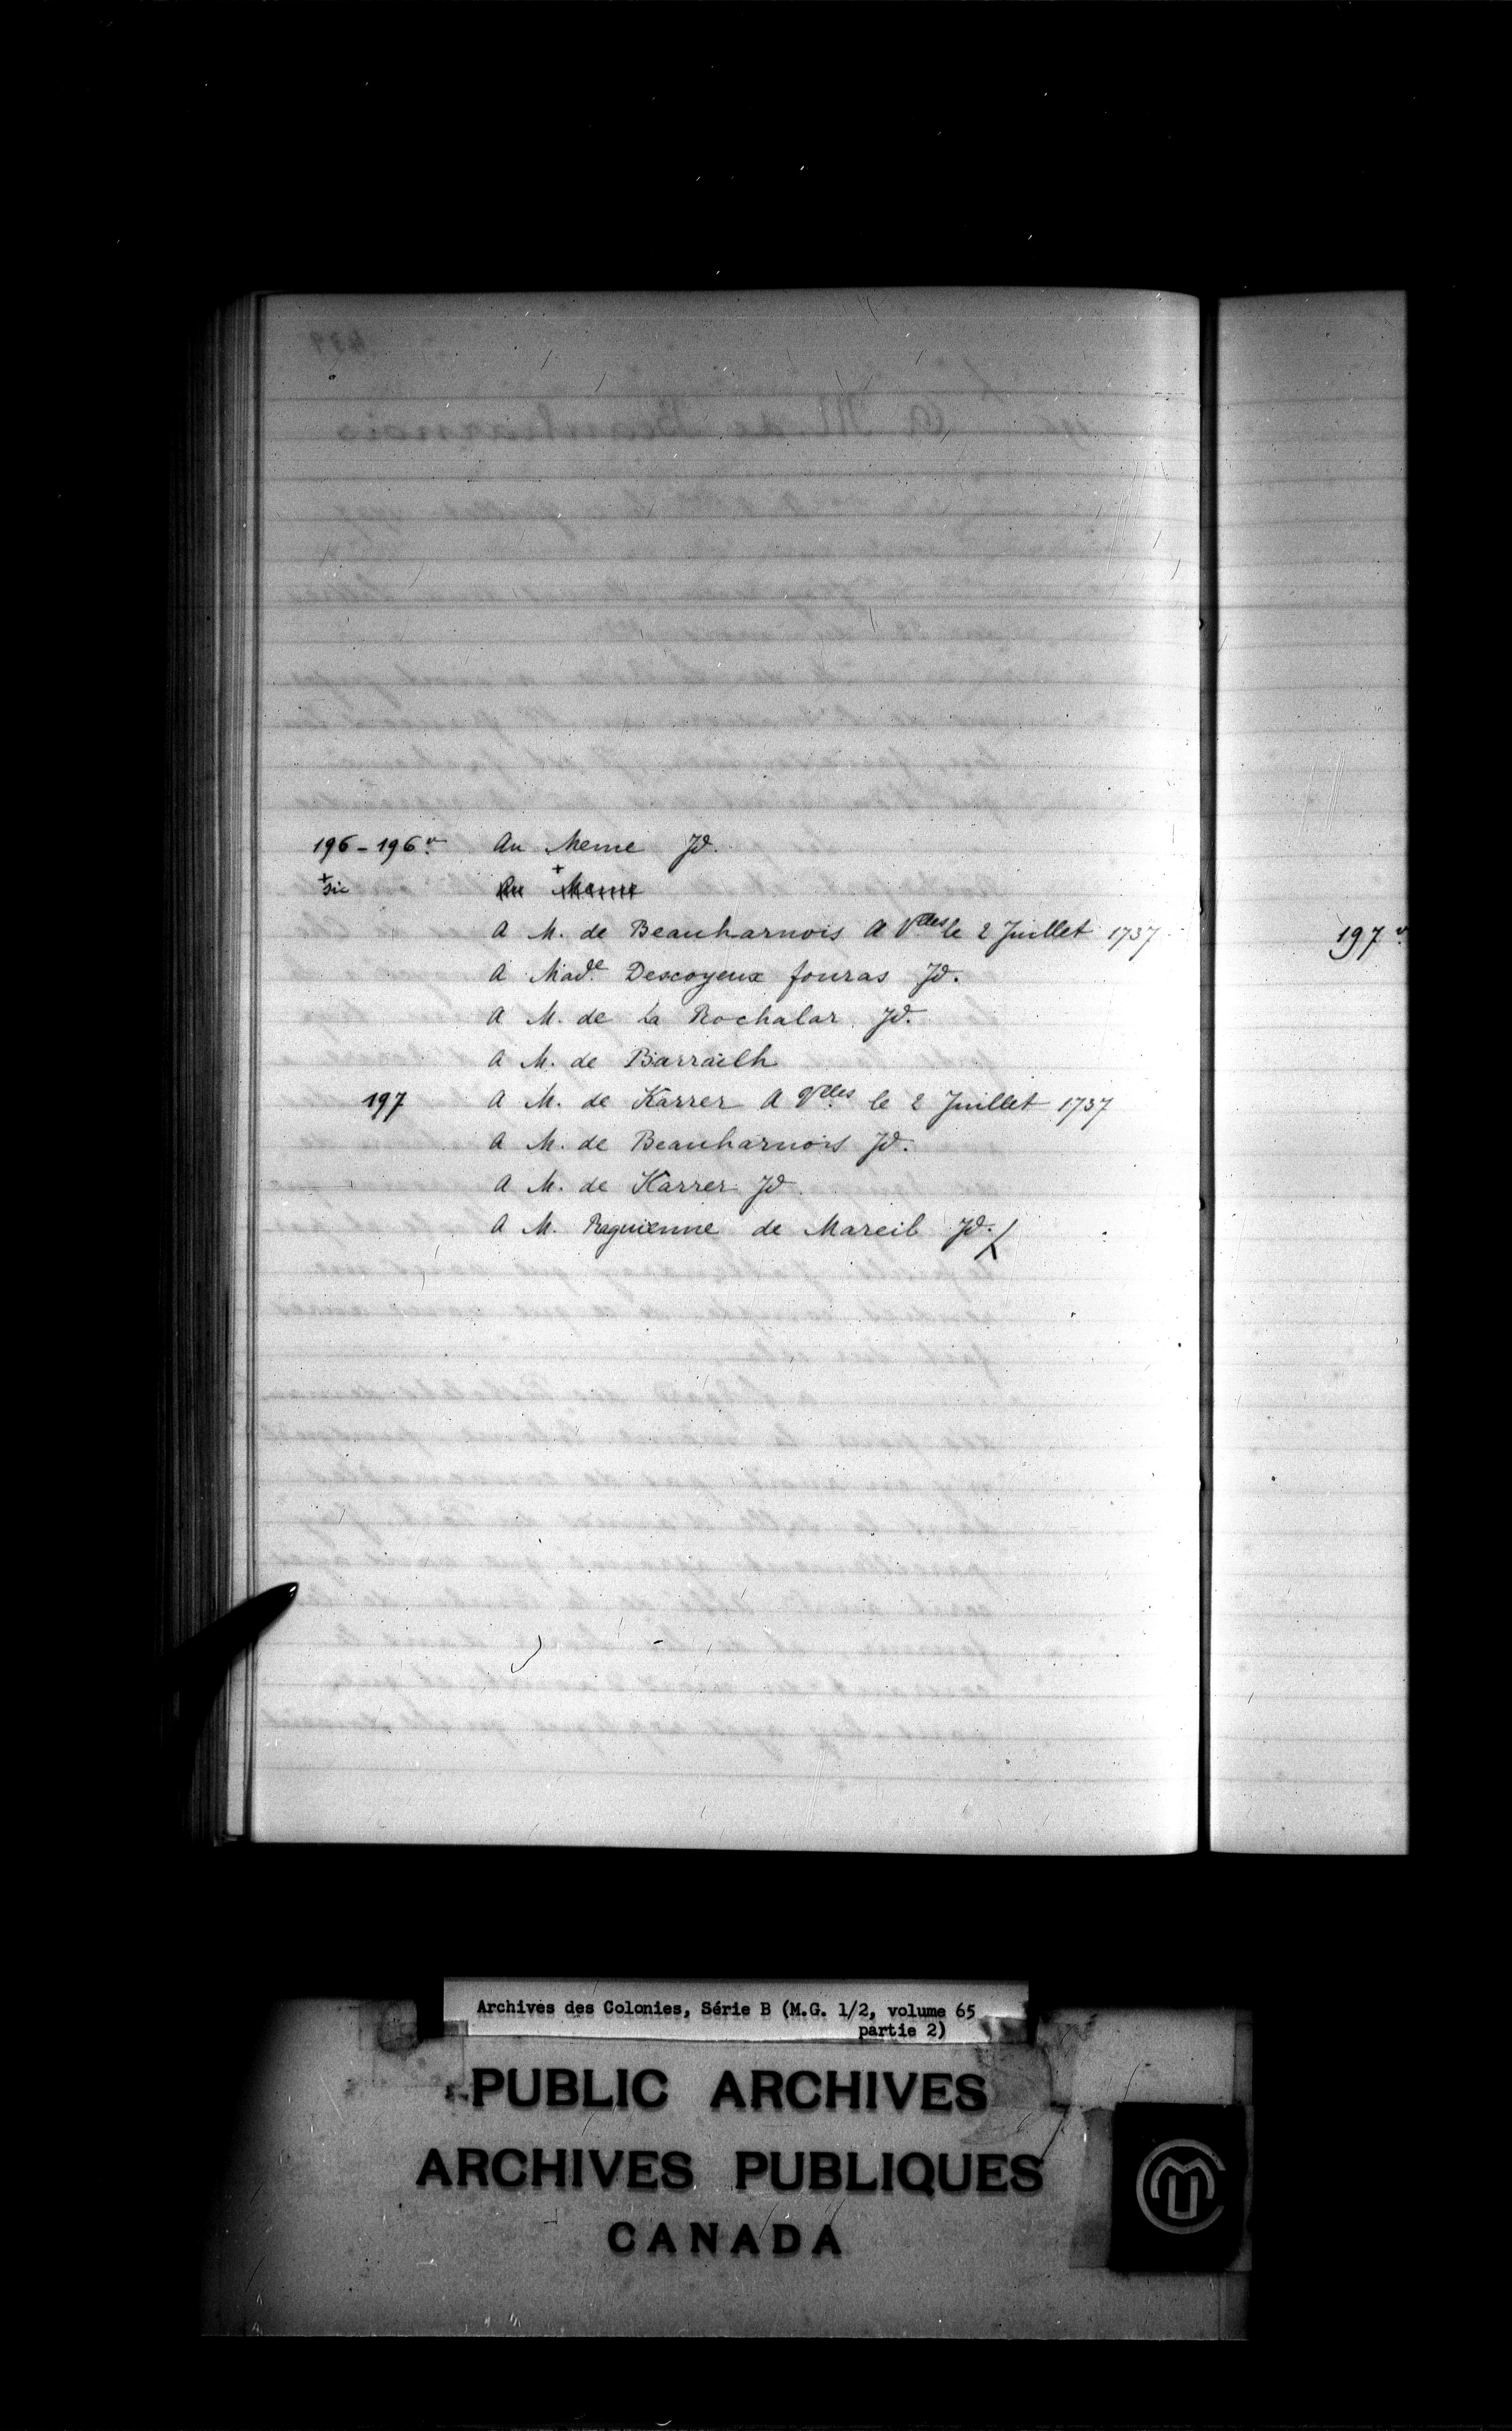 196 - 196 v. Au Meme Jd.
+ sic Au + Meme
A M. de Beauharnois A Vlles le 2 Juillet 1737
197 v.
A Made Descoyeux fouras Jd.
A M. de La Rochalar Jd.
A M. de Barrailh
197 A M. de Karrer A Vlles le 2 Juillet 1737
A M. de Beauharnois Jd.
A M. de Karrer Jd
A M. Raguienne de Mareil Jd.
Archives des Colonies, Série B (M.G. 1/2, volume 65
partie 2)
PUBLIC ARCHIVES
ARCHIVES PUBLIQUES
CANADA